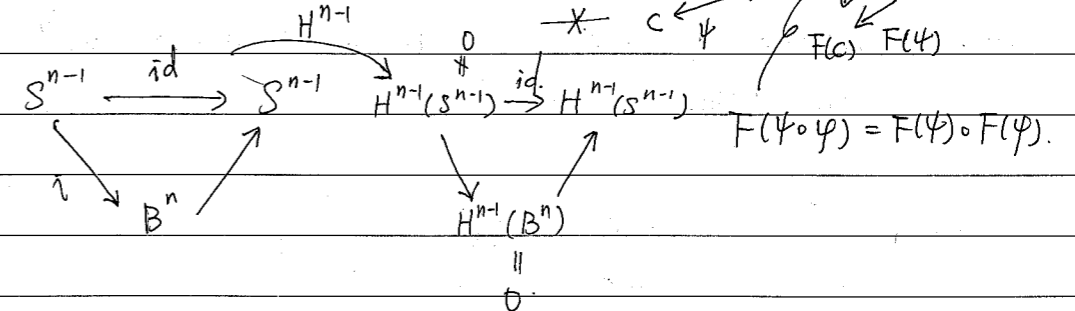 H^{n-1} X C ψ
F(C) F(ψ)
0
∦
S^{n-1} id S^{n-1} H^{n-1}(S^{n-1}) id. H^{n-1}(S^{n-1}) F(ψ∘φ) = F(ψ)∘F(φ).
i B^n H^{n-1}(B^n)
||
0.